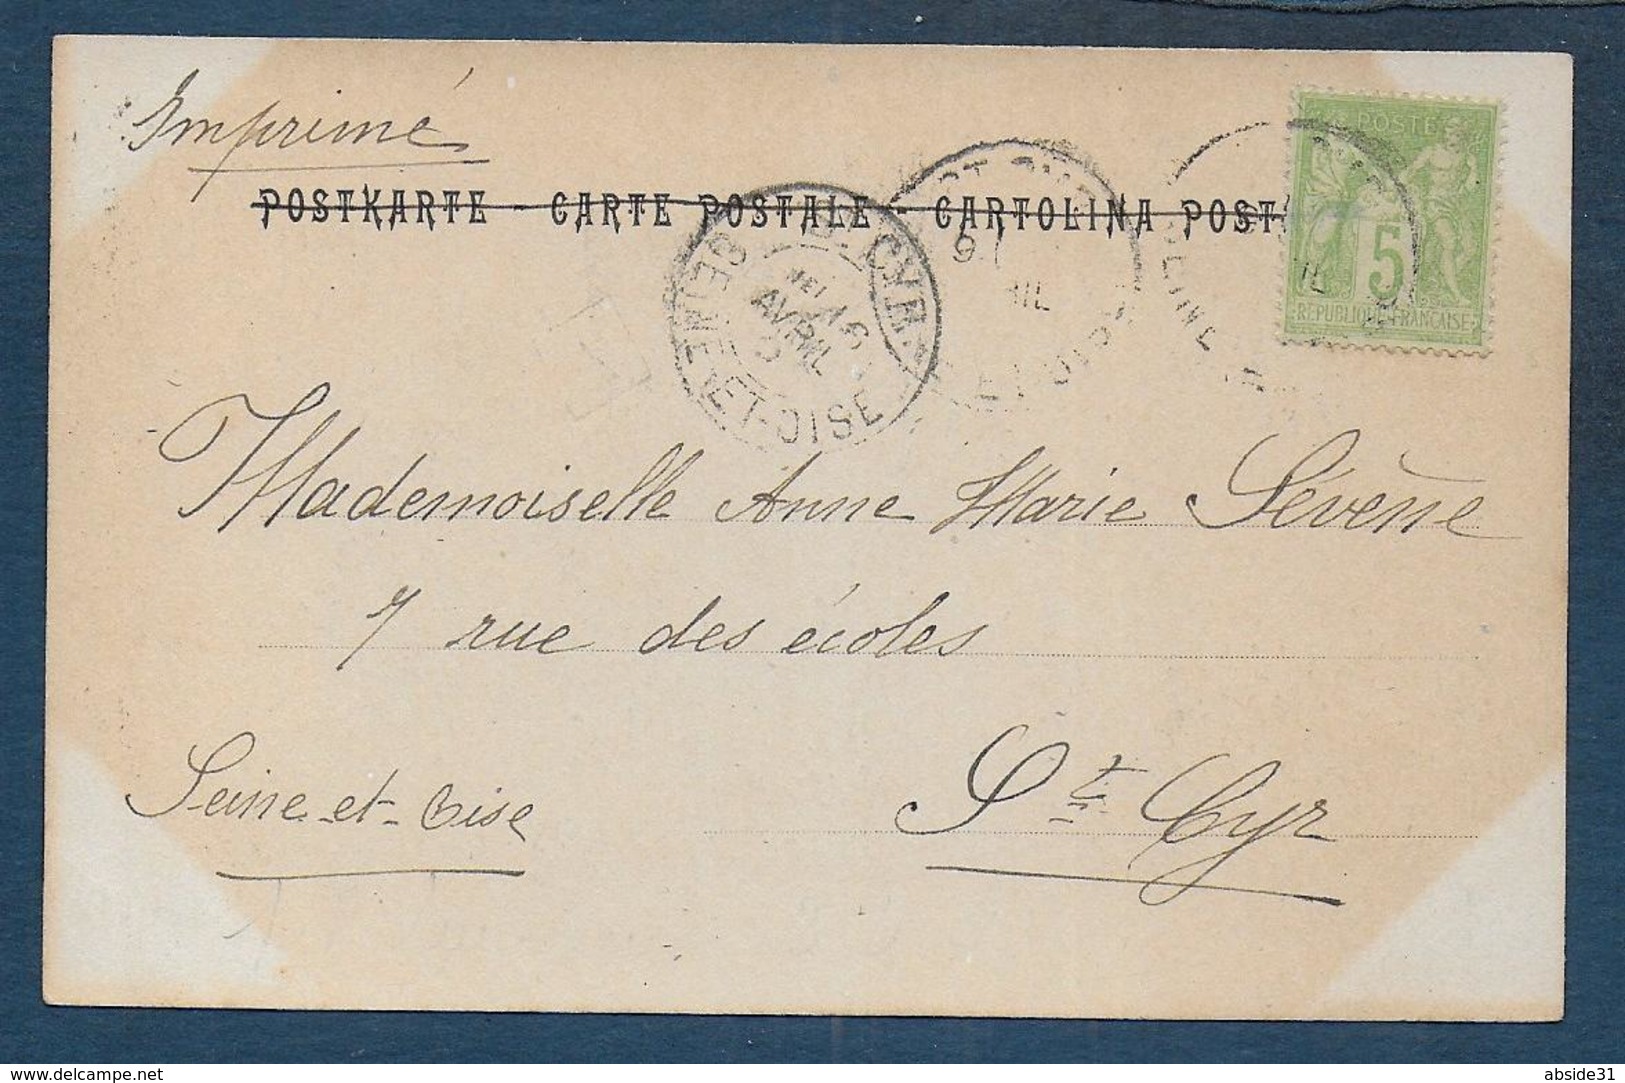 Imprimé
POSTKARTE - CARTE POSTALE - CARTOLINA POST
POSTE
5
REPUBLIQUE FRANÇAISE
ST CYR
AVRIL
SEINE-ET-OISE
Mademoiselle Anne Marie Sévène
7 rue des écoles
St Cyr
Seine-et-Oise
delcampe.net
abside31